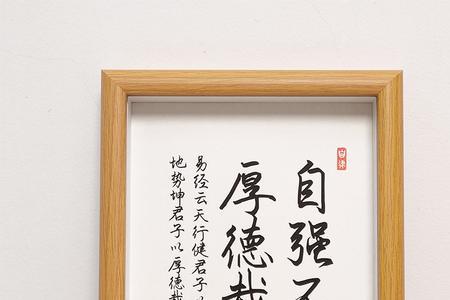 自强不
厚德载
易经云天行健君子以
地势坤君子以厚德载